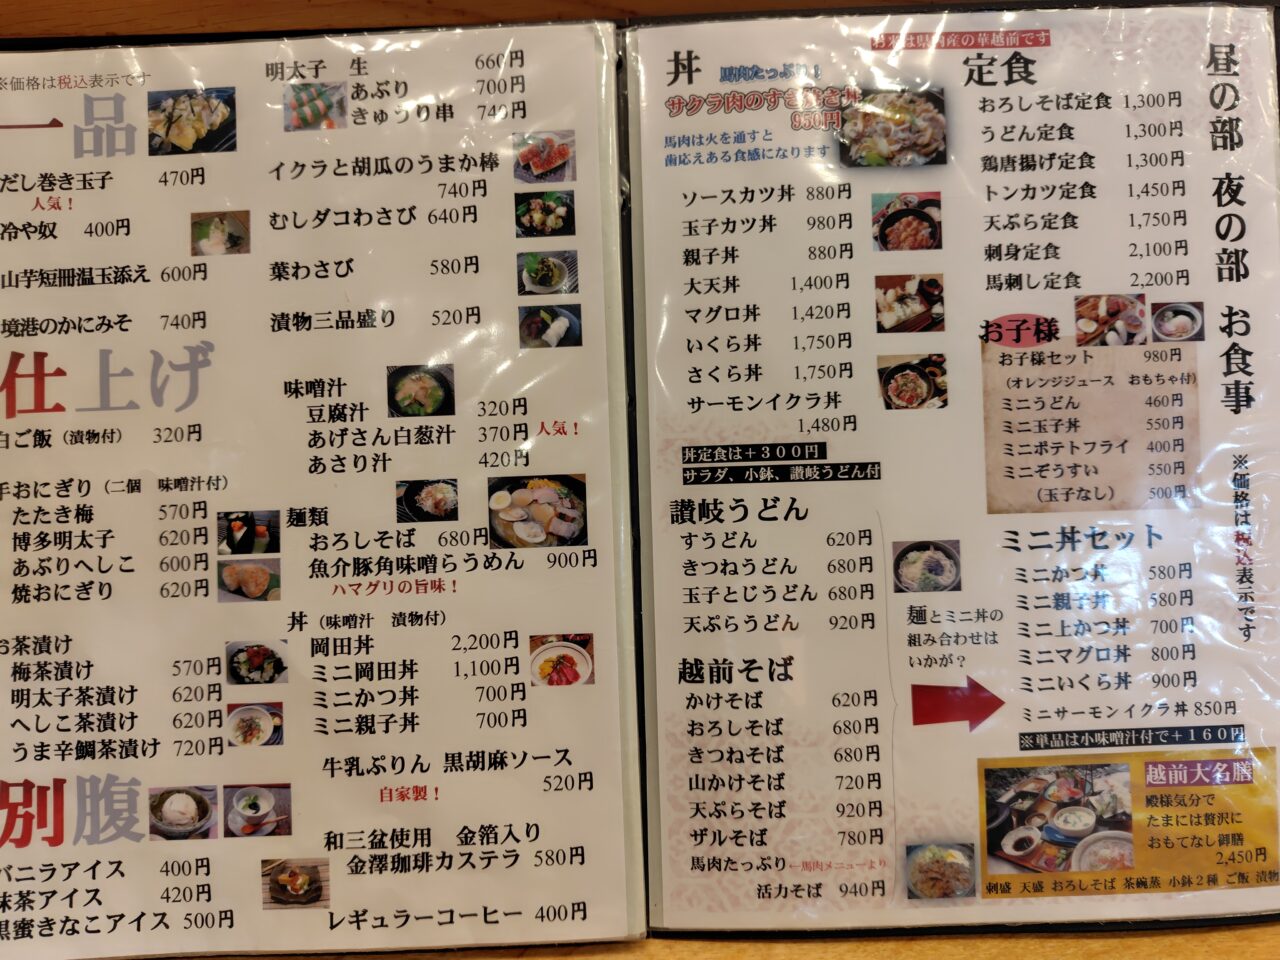 ※価格は税込表示です
一品
だし巻き玉子 470円
人気！
冷や奴 400円
山芋短冊温玉添え 600円
境港のかにみそ 740円
明太子 生 660円
あぶり 700円
きゅうり串 740円
イクラと胡瓜のうまか棒
740円
むしダコわさび 640円
葉わさび 580円
漬物三品盛り 520円
仕上げ
白ご飯（漬物付） 320円
手おにぎり（二個 味噌汁付）
たたき梅 570円
博多明太子 620円
あぶりへしこ 600円
焼おにぎり 620円
お茶漬け
梅茶漬け 570円
明太子茶漬け 620円
へしこ茶漬け 620円
うま辛鯛茶漬け 720円
味噌汁
豆腐汁 320円
あげさん白葱汁 370円 人気！
あさり汁 420円
麺類
おろしそば 680円
魚介豚角味噌らうめん 900円
ハマグリの旨味！
丼（味噌汁 漬物付）
岡田丼 2,200円
ミニ岡田丼 1,100円
ミニかつ丼 700円
ミニ親子丼 700円
別腹
バニラアイス 400円
抹茶アイス 420円
黒蜜きなこアイス 500円
牛乳ぷりん 黒胡麻ソース
自家製！ 520円
和三盆使用 金箔入り
金澤珈琲カステラ 580円
レギュラーコーヒー 400円
丼 馬肉たっぷり！
サクラ肉のすき焼き丼
950円
馬肉は火を通すと
歯応えある食感になります
ソースカツ丼 880円
玉子カツ丼 980円
親子丼 880円
大天丼 1,400円
マグロ丼 1,420円
いくら丼 1,750円
さくら丼 1,750円
サーモンイクラ丼
1,480円
丼定食は＋３００円
サラダ、小鉢、讃岐うどん付
讃岐うどん
すうどん 620円
きつねうどん 680円
玉子とじうどん 680円
天ぷらうどん 920円
越前そば
かけそば 620円
おろしそば 680円
きつねそば 680円
山かけそば 720円
天ぷらそば 920円
ザルそば 780円
馬肉たっぷり ←馬肉メニューより
活力そば 940円
麺とミニ丼の
組み合わせは
いかが？
お米は県内産の華越前です
定食
おろしそば定食 1,300円
うどん定食 1,300円
鶏唐揚げ定食 1,300円
トンカツ定食 1,450円
天ぷら定食 1,750円
刺身定食 2,100円
馬刺し定食 2,200円
お子様
お子様セット 980円
（オレンジジュース おもちゃ付）
ミニうどん 460円
ミニ玉子丼 550円
ミニポテトフライ 400円
ミニぞうすい 550円
（玉子なし） 500円
ミニ丼セット
ミニかつ丼 580円
ミニ親子丼 580円
ミニ上かつ丼 700円
ミニマグロ丼 800円
ミニいくら丼 900円
ミニサーモンイクラ丼 850円
※単品は小味噌汁付で＋１６０円
越前大名膳
殿様気分で
たまには贅沢に
おもてなし御膳
2,450円
刺盛 天盛 おろしそば 茶碗蒸 小鉢２種 ご飯 漬物
昼の部 夜の部 お食事
※価格は税込表示です